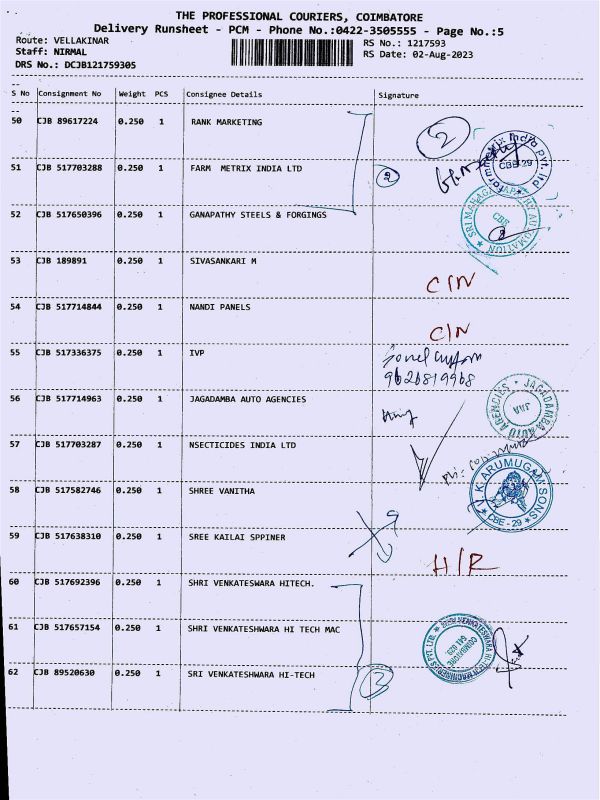 THE PROFESSIONAL COURIERS, COIMBATORE
Delivery Runsheet - PCM - Phone No.:0422-3505555 - Page No.:5
Route: VELLAKINAR RS No.: 1217593
Staff: NIRMAL RS Date: 02-Aug-2023
DRS No.: DCJB121759305
S No Consignment No Weight PCS Consignee Details Signature
50 CJB 89617224 0.250 1 RANK MARKETING
2
CBE-29
51 CJB 517703288 0.250 1 FARM METRIX INDIA LTD
52 CJB 517650396 0.250 1 GANAPATHY STEELS & FORGINGS
CBE
53 CJB 189891 0.250 1 SIVASANKARI M
C/N
54 CJB 517714844 0.250 1 NANDI PANELS
C/N
55 CJB 517336375 0.250 1 IVP
9626819968
56 CJB 517714963 0.250 1 JAGADAMBA AUTO AGENCIES
JAGADAMBA AUTO AGENCIES
57 CJB 517703287 0.250 1 NSECTICIDES INDIA LTD
58 CJB 517582746 0.250 1 SHREE VANITHA
V.K. ARUMUGAM SONS
CBE-29
59 CJB 517638310 0.250 1 SREE KAILAI SPPINER
H/R
60 CJB 517692396 0.250 1 SHRI VENKATESWARA HITECH.
61 CJB 517657154 0.250 1 SHRI VENKATESHWARA HI TECH MAC
62 CJB 89520630 0.250 1 SRI VENKATESWARA HI-TECH
3